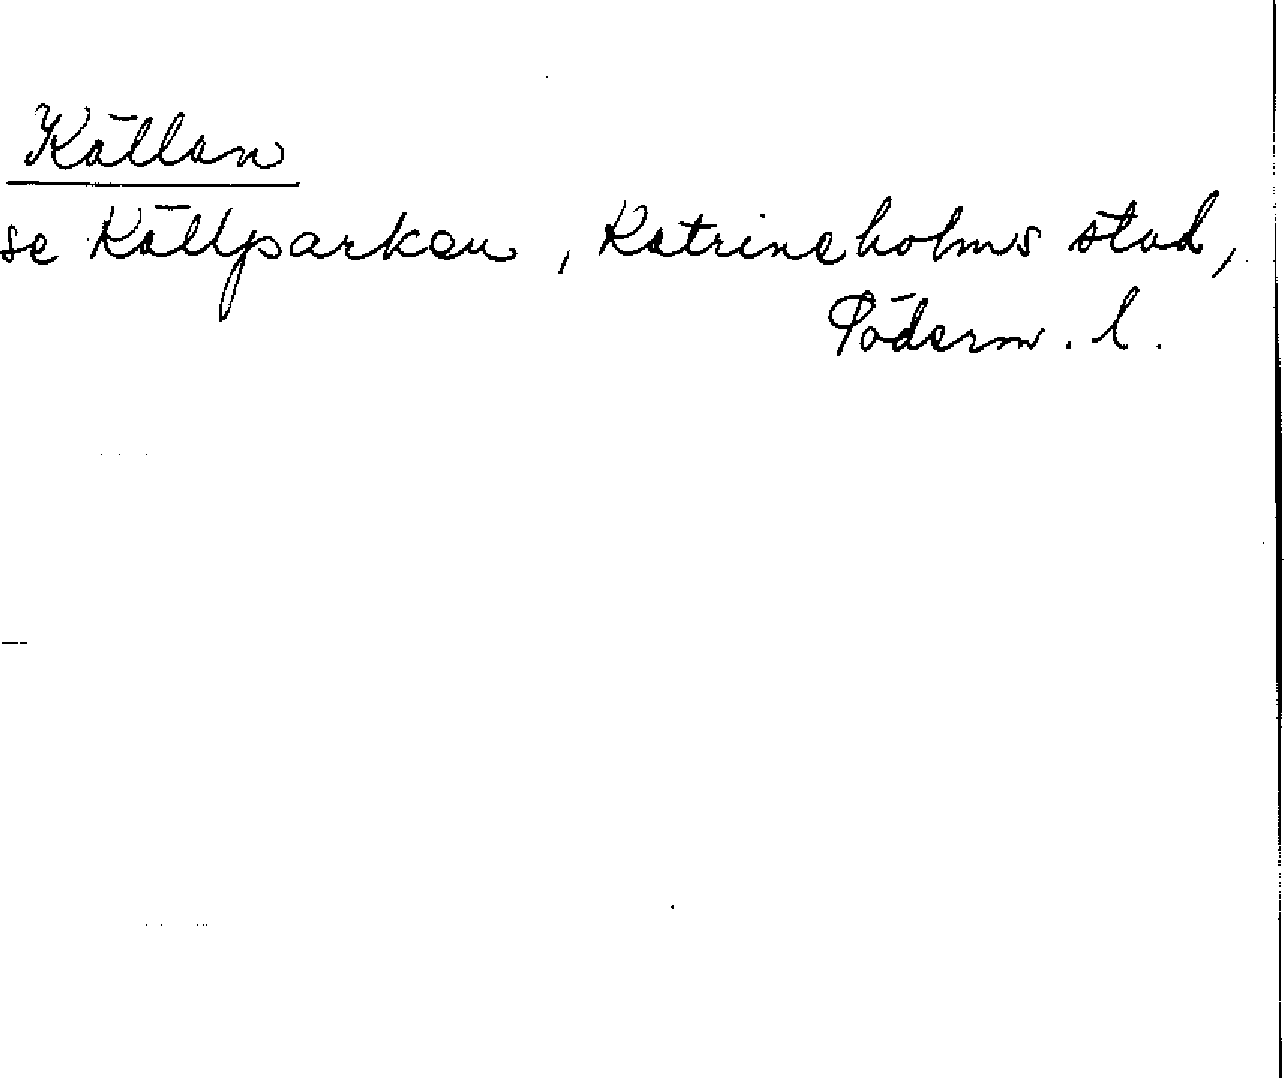 Källan
se Källparken, Katrineholms stad,
Söderm. l.